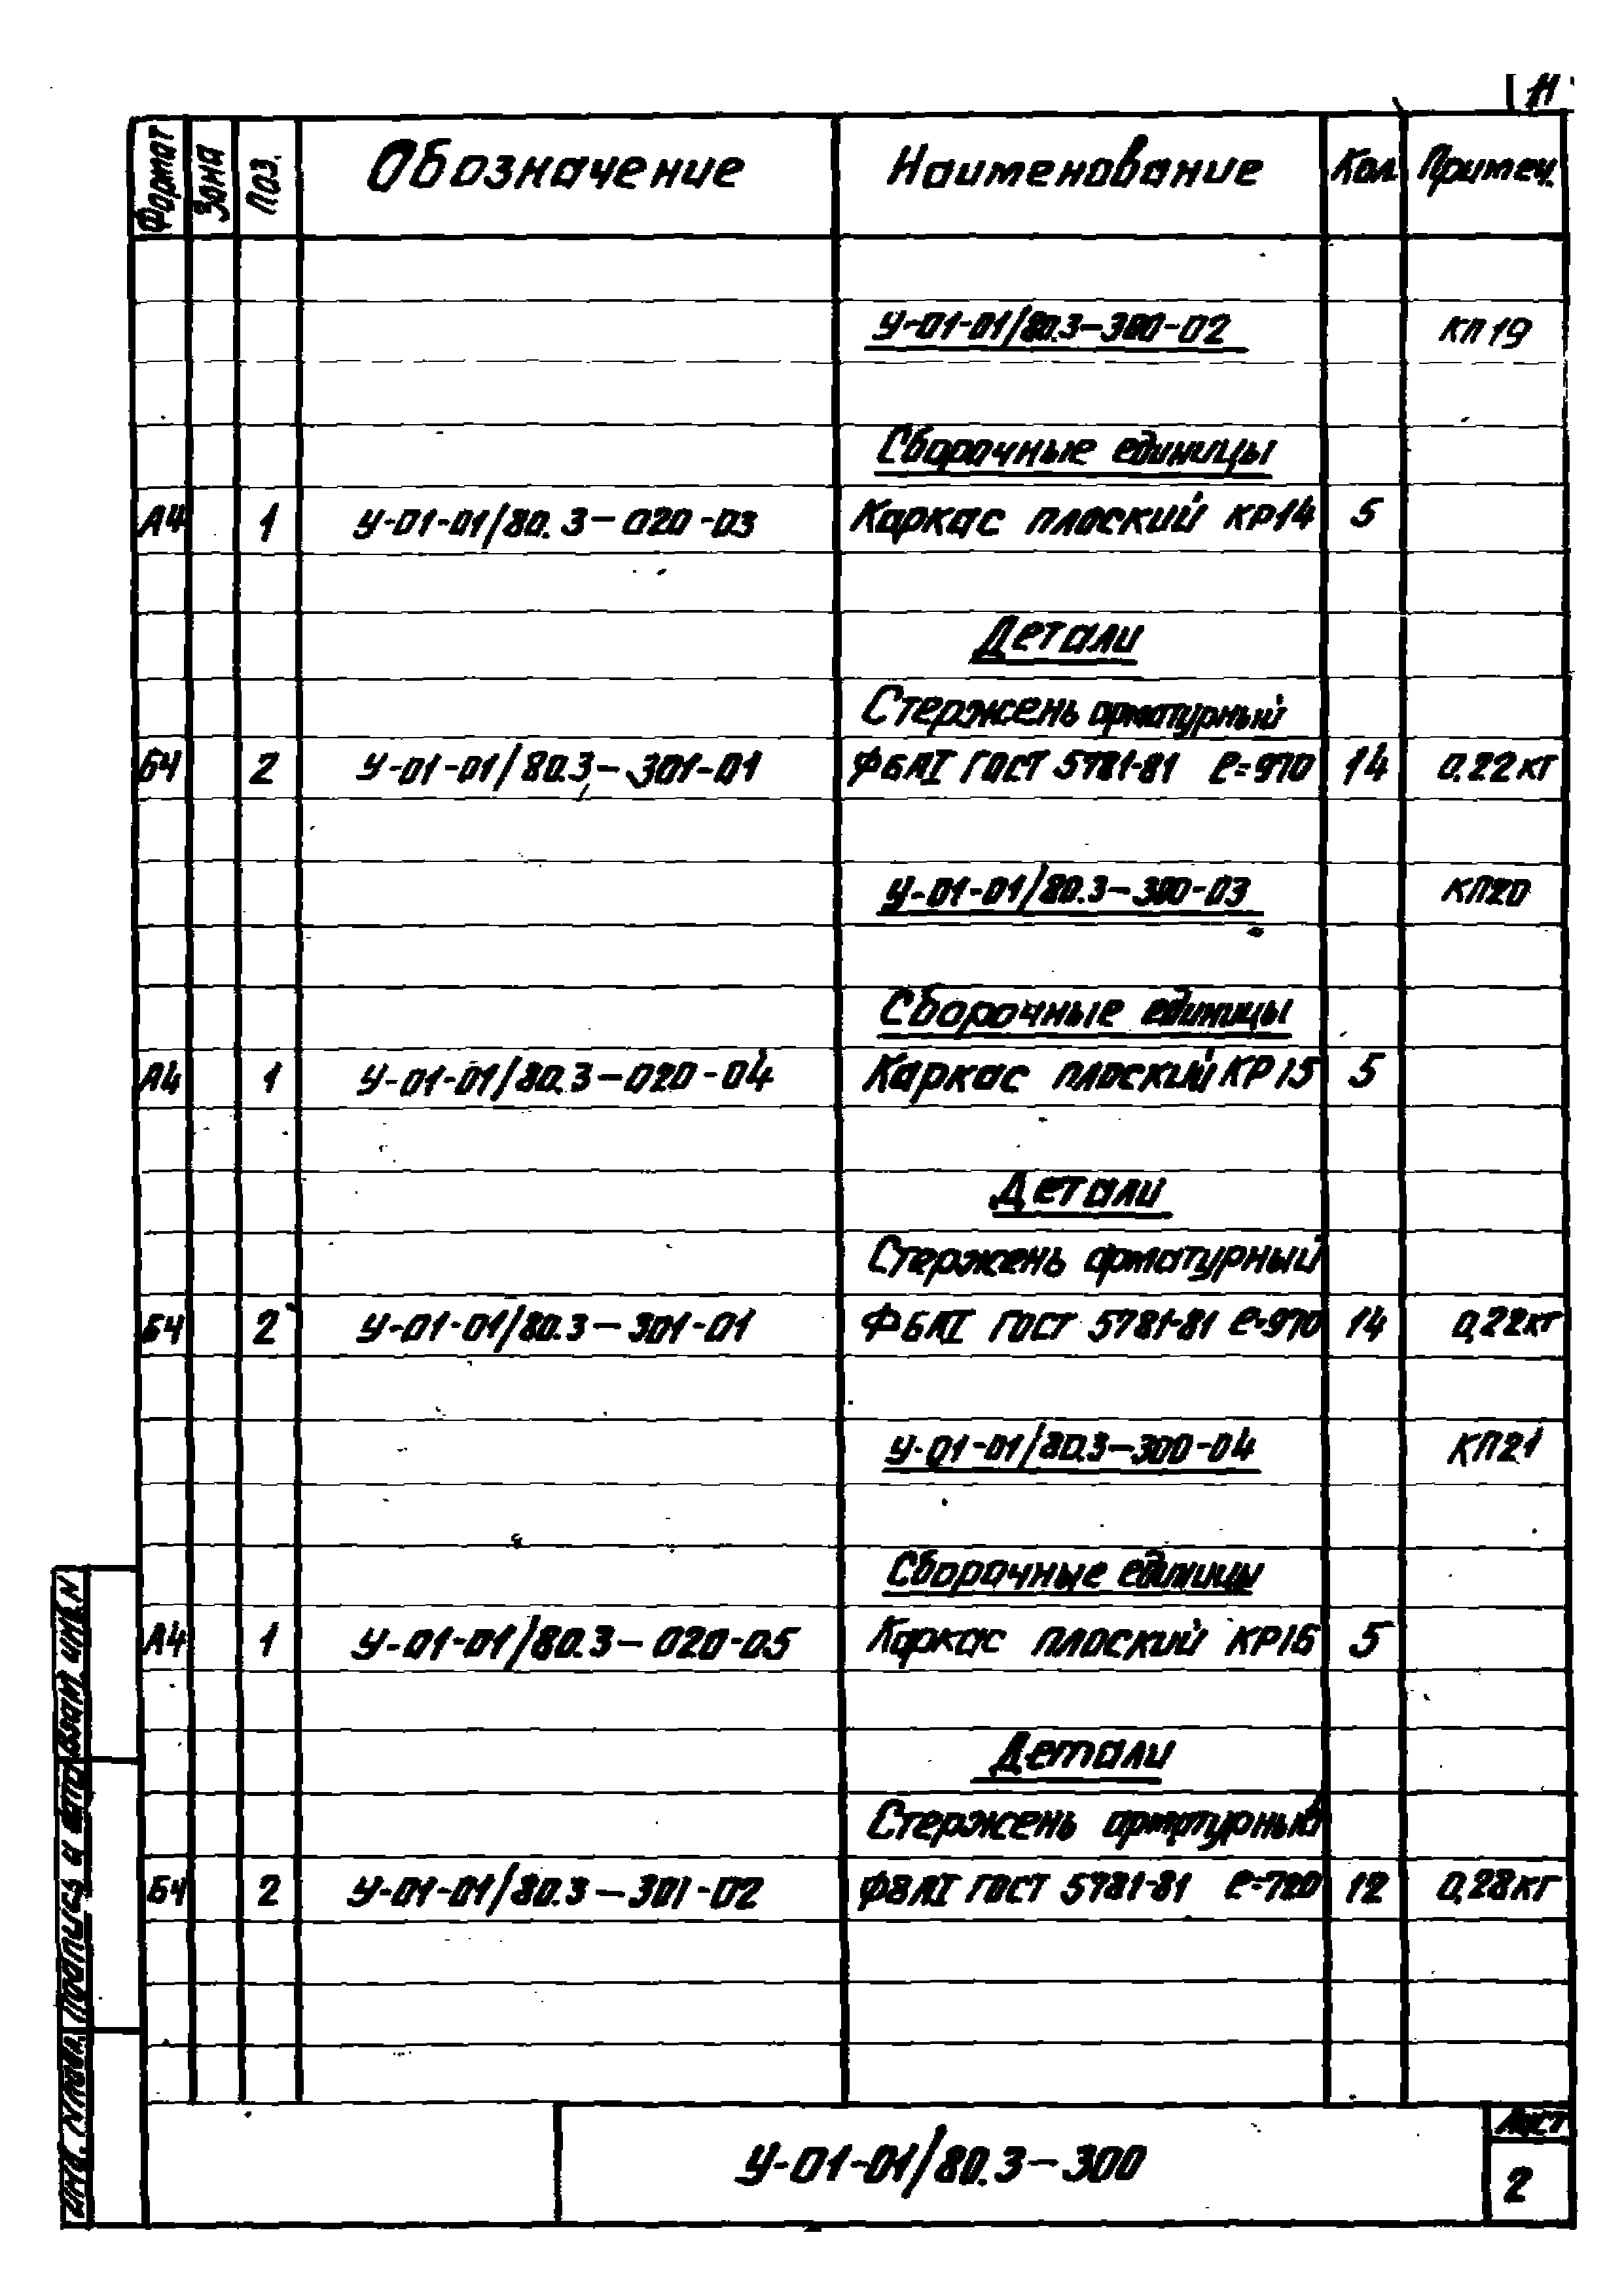 11
Формат Зона Поз. Обозначение Наименование Кол. Примеч.
У-01-01/80.3-300-02 КП19
Сборочные единицы
А4 1 У-01-01/80.3-020-03 Каркас плоский КР14 5
Детали
Стержень арматурный
БЧ 2 У-01-01/80.3-301-01 Ф6АI ГОСТ 5781-81 ℓ=970 14 0.22кг
У-01-01/80.3-300-03 КП20
Сборочные единицы
А4 1 У-01-01/80.3-020-04 Каркас плоский КР15 5
Детали
Стержень арматурный
БЧ 2 У-01-01/80.3-301-01 Ф6АI ГОСТ 5781-81 ℓ=970 14 0,22кг
У-01-01/80.3-300-04 КП21
Сборочные единицы
А4 1 У-01-01/80.3-020-05 Каркас плоский КР16 5
Детали
Стержень арматурный
БЧ 2 У-01-01/80.3-301-02 Ф8АI ГОСТ 5781-81 ℓ=720 12 0,28кг
Взам инв. N
Подпись и дата
Инв. N подл.
У-01-01/80.3-300
Лист
2